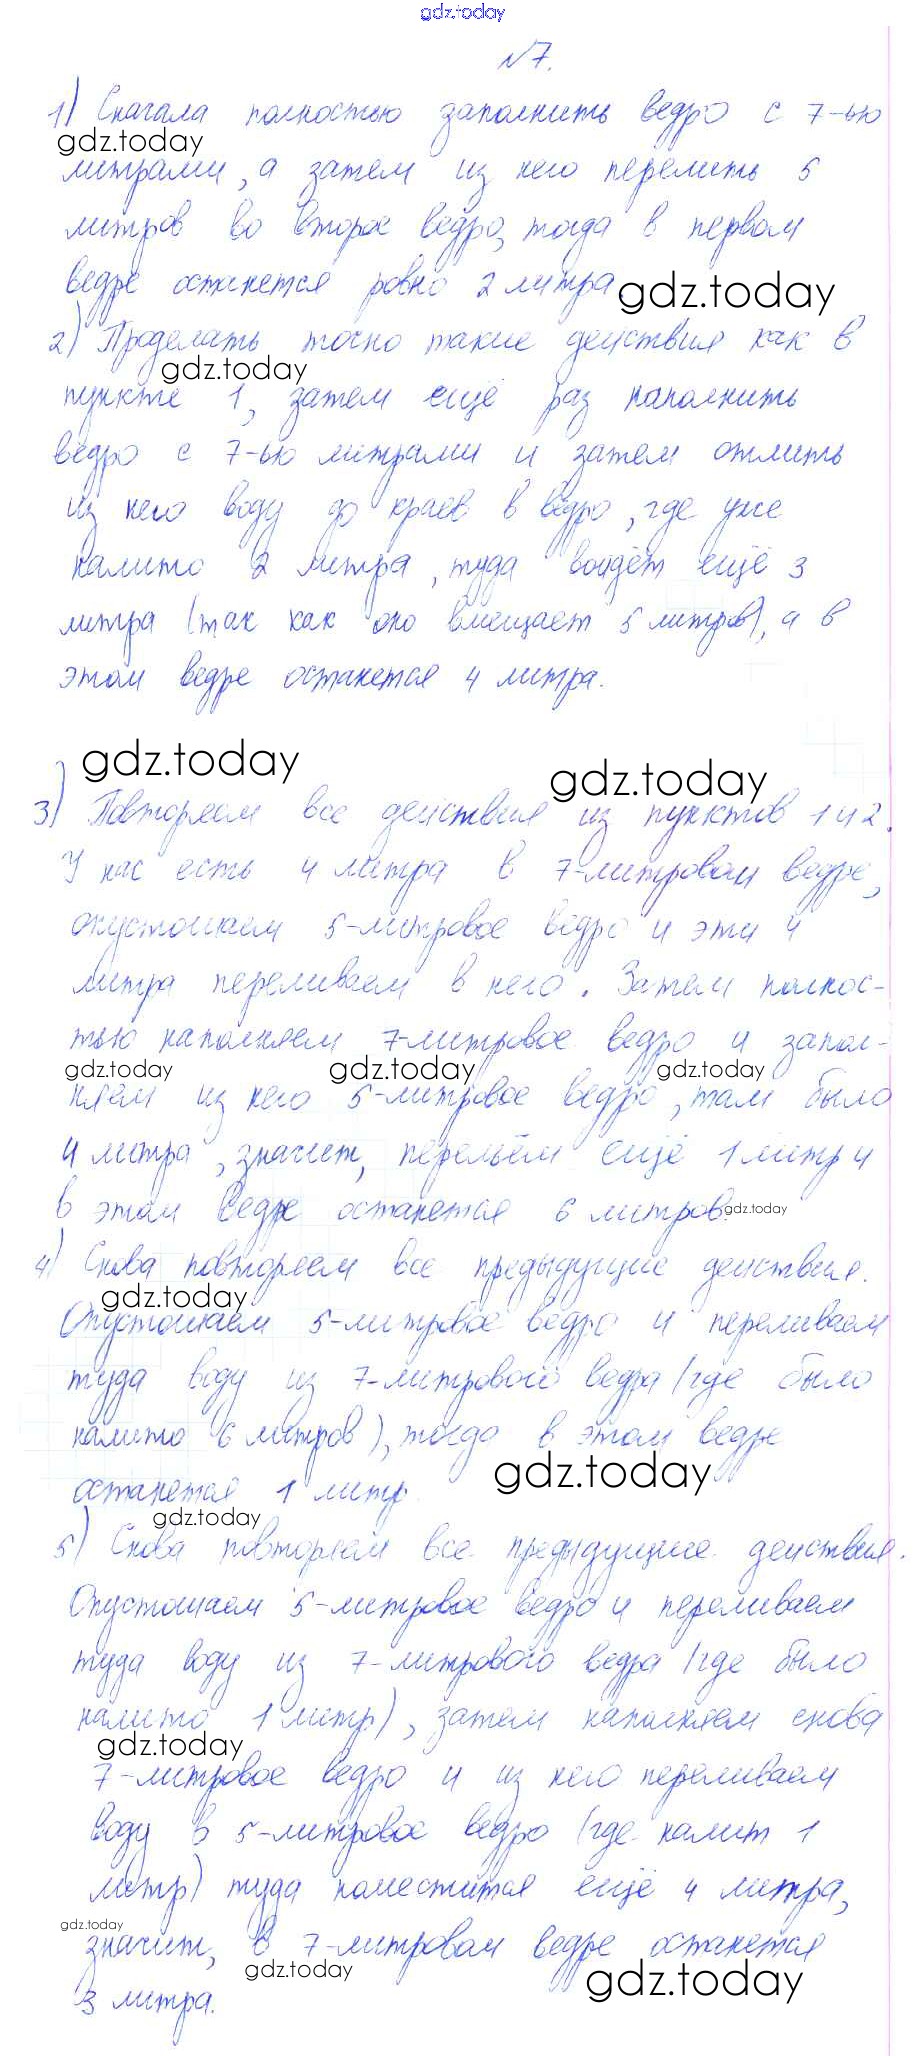 gdz.today
№7.
1) Сначала полностью заполнить ведро с 7-ью
gdz.today
литрами, а затем из него перелить 5
литров во второе ведро, тогда в первом
ведре останется ровно 2 литра.
gdz.today
2) Проделать точно такие действия как в
gdz.today
пункте 1, затем ещё раз наполнить
ведро с 7-ью литрами и затем отлить
из него воду до краев в ведро, где уже
налито 2 литра, туда войдёт ещё 3
литра (так как оно вмещает 5 литров), а в
этом ведре останется 4 литра.
gdz.today
gdz.today
3) Повторяем все действия из пунктов 1 и 2.
У нас есть 4 литра в 7-литровом ведре,
опустошаем 5-литровое ведро и эти 4
литра переливаем в него. Затем полнос-
тью наполняем 7-литровое ведро и запол-
gdz.today gdz.today gdz.today
няем из него 5-литровое ведро, там было
4 литра, значит, перельём ещё 1 литр и
в этом ведре останется 6 литров.
gdz.today
4) Снова повторяем все предыдущие действия.
gdz.today
Опустошаем 5-литровое ведро и переливаем
туда воду из 7-литрового ведра (где было
налито 6 литров), тогда в этом ведре
gdz.today
останется 1 литр.
gdz.today
5) Снова повторяем все предыдущие действия.
Опустошаем 5-литровое ведро и переливаем
туда воду из 7-литрового ведра (где было
налито 1 литр), затем наполняем снова
gdz.today
7-литровое ведро и из него переливаем
воду в 5-литровое ведро (где налит 1
литр) туда поместится ещё 4 литра,
gdz.today
значит, в 7-литровом ведре останется
gdz.today gdz.today
3 литра.